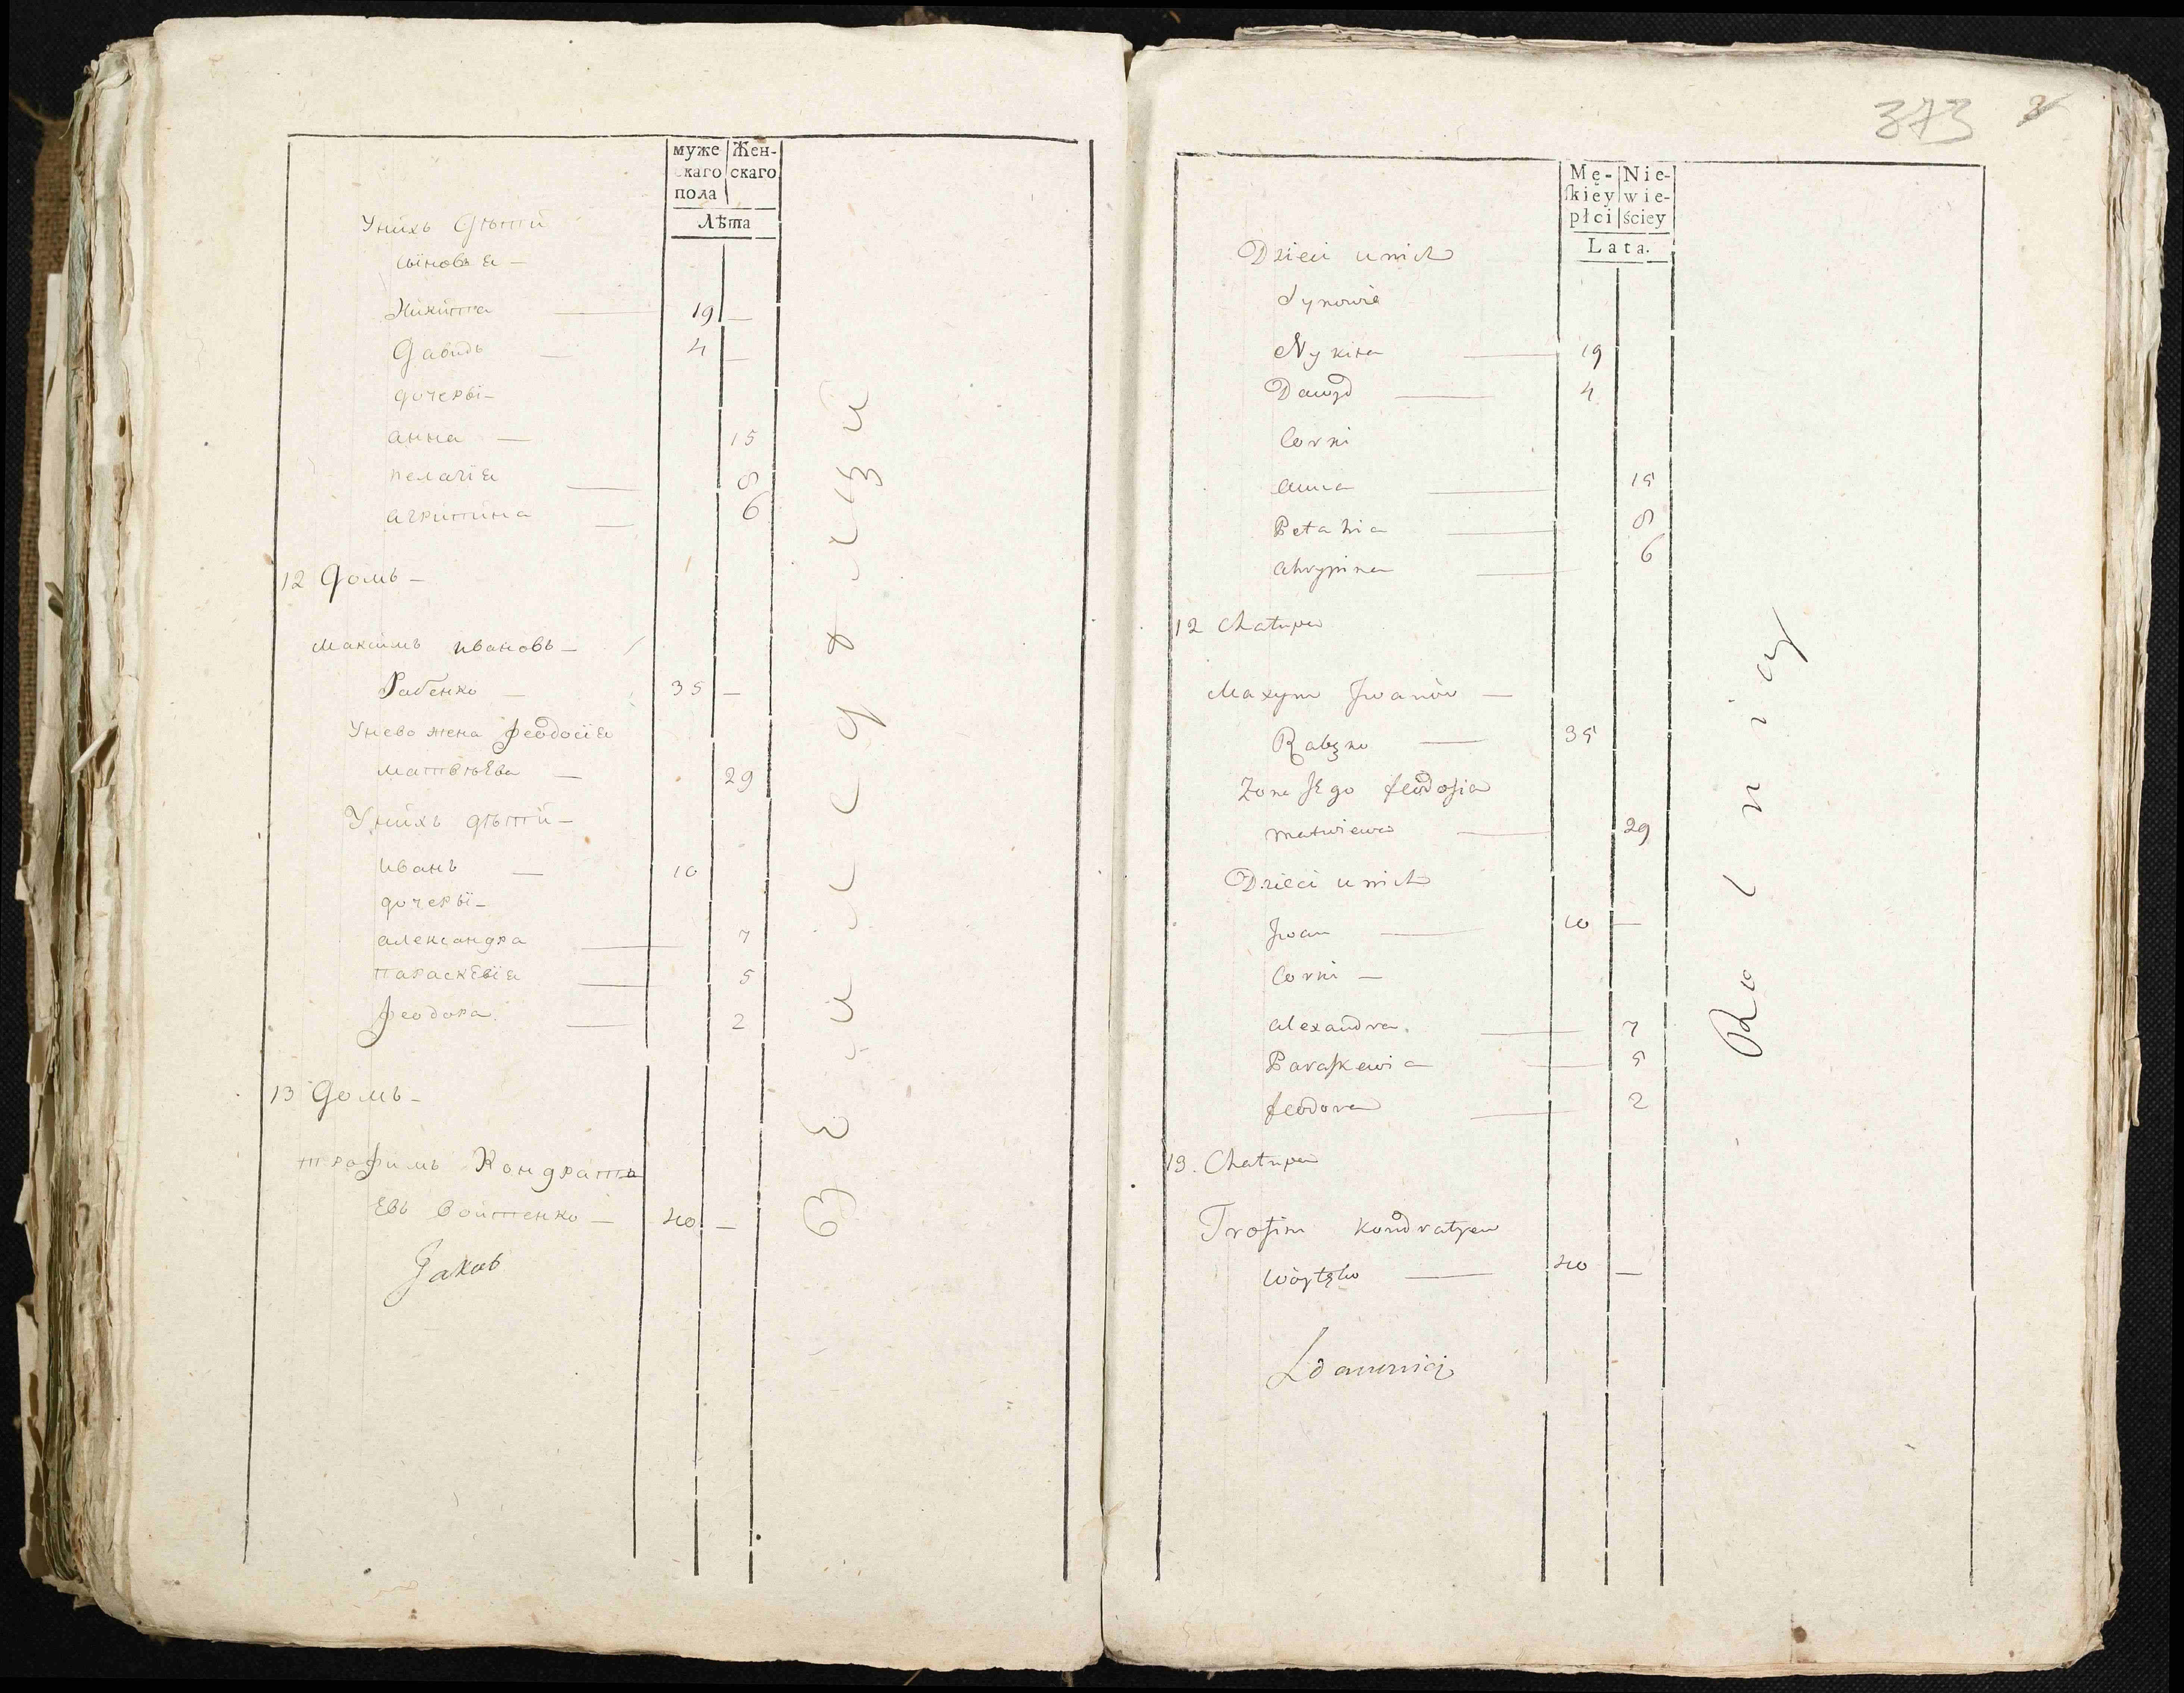 муже Жен-
скаго скаго
пола
Лѣта
Унихъ дѣтѣй
сыновья —
Никита — 19 —
Давидъ — 4 —
дочеры —
анна — 15
пелагія — 8
агрипина — 6
12 домъ —
Максимъ ивановъ —
Рабенко — 35 —
Унево жена феодосія
матвѣева — 29
Унихъ дѣтѣй —
иванъ — 10
дочеры —
александра — 7
параскевія — 5
феодора — 2
13 домъ —
трофимъ Кондрать
евъ войтенко — 40 —
Jakub
Земледѣлцы
373
Mę- Nie-
skiey wie-
płci ściey
Lata.
Dzieci u nich
Synowie
Nykita — 19
Dawyd — 4
Corki
Anna — 15
Pelahia — 8
Ahrypina — 6
12 Chałupa
Maxym Jwanów —
Rabęko — 35
Zona Jego feodosia
matwiewa — 29
Dzieci u nich
Jwan — 10 —
Corki —
Alexandra — 7
Paraskewia — 5
feodora — 2
13. Chałupa
Trofim Kondratyew
Woytęko — 40 —
Rolnicy